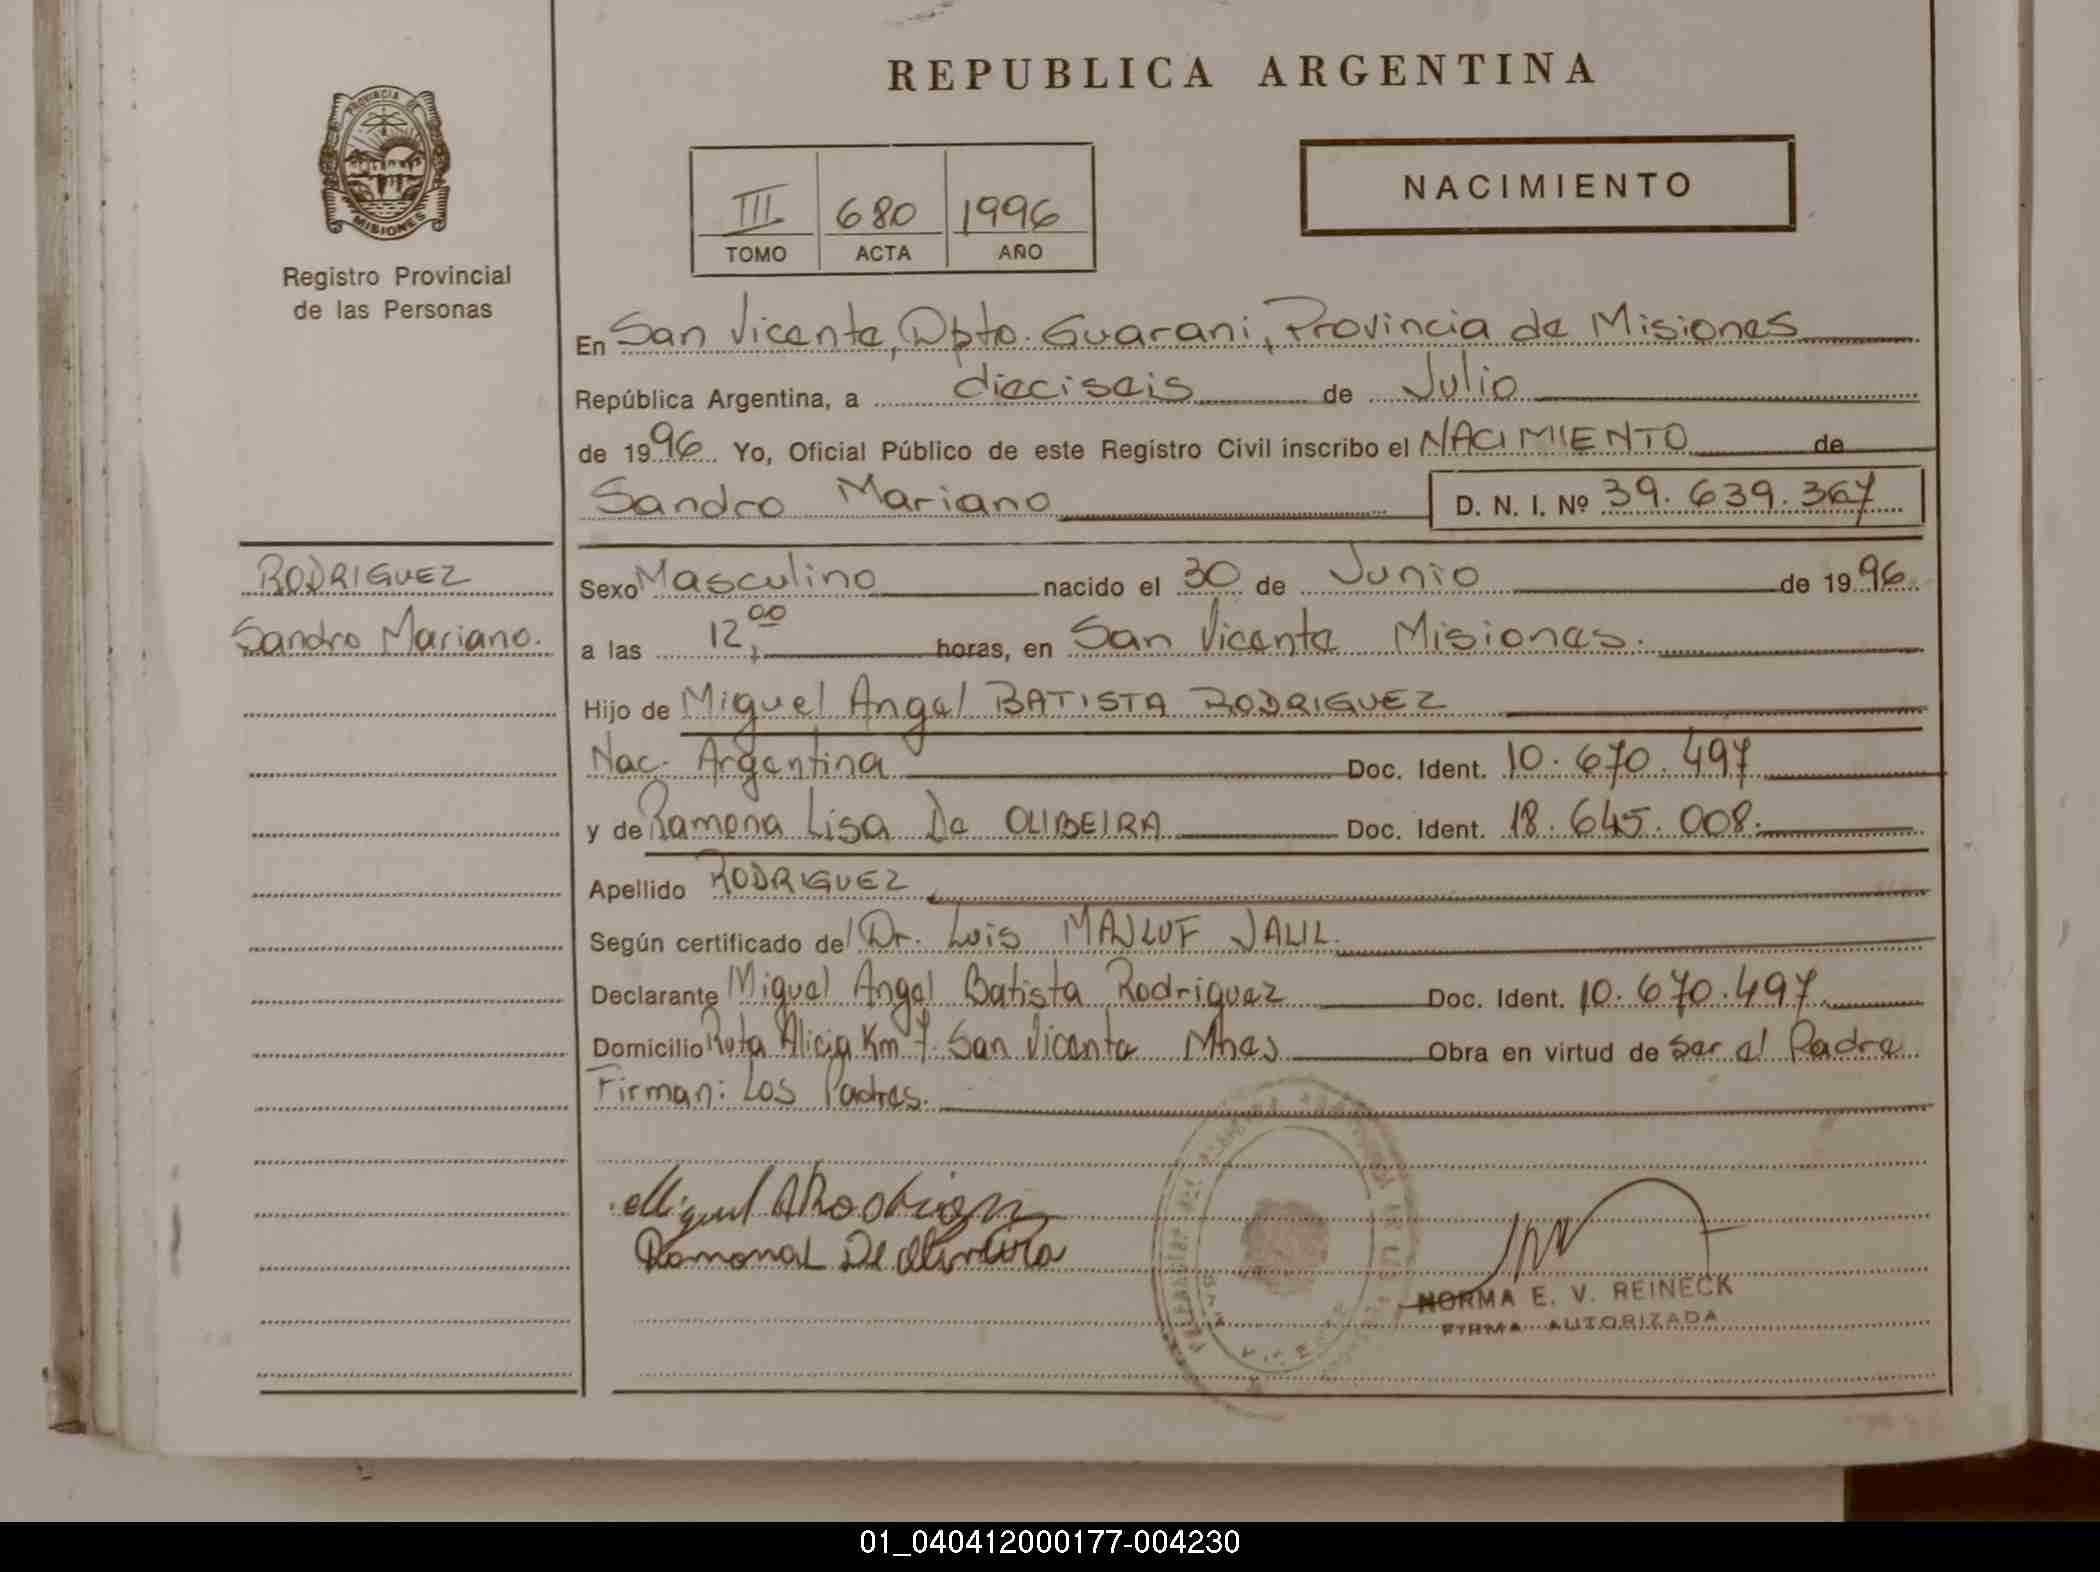 REPUBLICA ARGENTINA
PROVINCIA DE
MISIONES
Registro Provincial
de las Personas
NACIMIENTO
III 680 1996
TOMO ACTA AÑO
En San Vicente, Dpto. Guarani, Provincia de Misiones
República Argentina, a dieciseis de Julio
de 1996 Yo, Oficial Público de este Registro Civil inscribo el NACIMIENTO de
Sandro Mariano D. N. I. Nº 39.639.367
RODRIGUEZ
Sandro Mariano.
Sexo Masculino nacido el 30 de Junio de 1996
a las 12,00 horas, en San Vicente Misiones.
Hijo de Miguel Angel BATISTA RODRIGUEZ
Nac. Argentina Doc. Ident. 10.670.497
y de Ramona Lisa De OLIBEIRA Doc. Ident. 18.645.008.
Apellido RODRIGUEZ
Según certificado del Dr. Luis MAJLUF JALIL.
Declarante Miguel Angel Batista Rodriguez Doc. Ident. 10.670.497
Domicilio Ruta Alicia Km 7. San Vicente Mnes Obra en virtud de ser el Padre
Firman: Los Padres.
Miguel A Rodrigez
Ramona L De Oliveira
NORMA E. V. REINECK
FIRMA AUTORIZADA
01_040412000177-004230